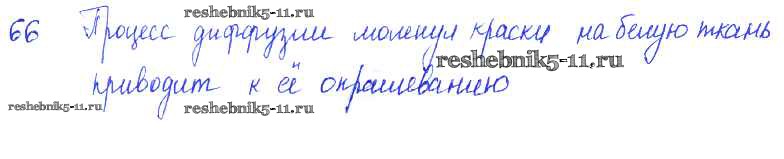 reshebnik5-11.ru reshebnik5-11.ru
66 Процесс диффузии молекул краски на белую ткань
reshebnik5-11.ru
приводит к её окрашеванию
reshebnik5-11.ru reshebnik5-11.ru